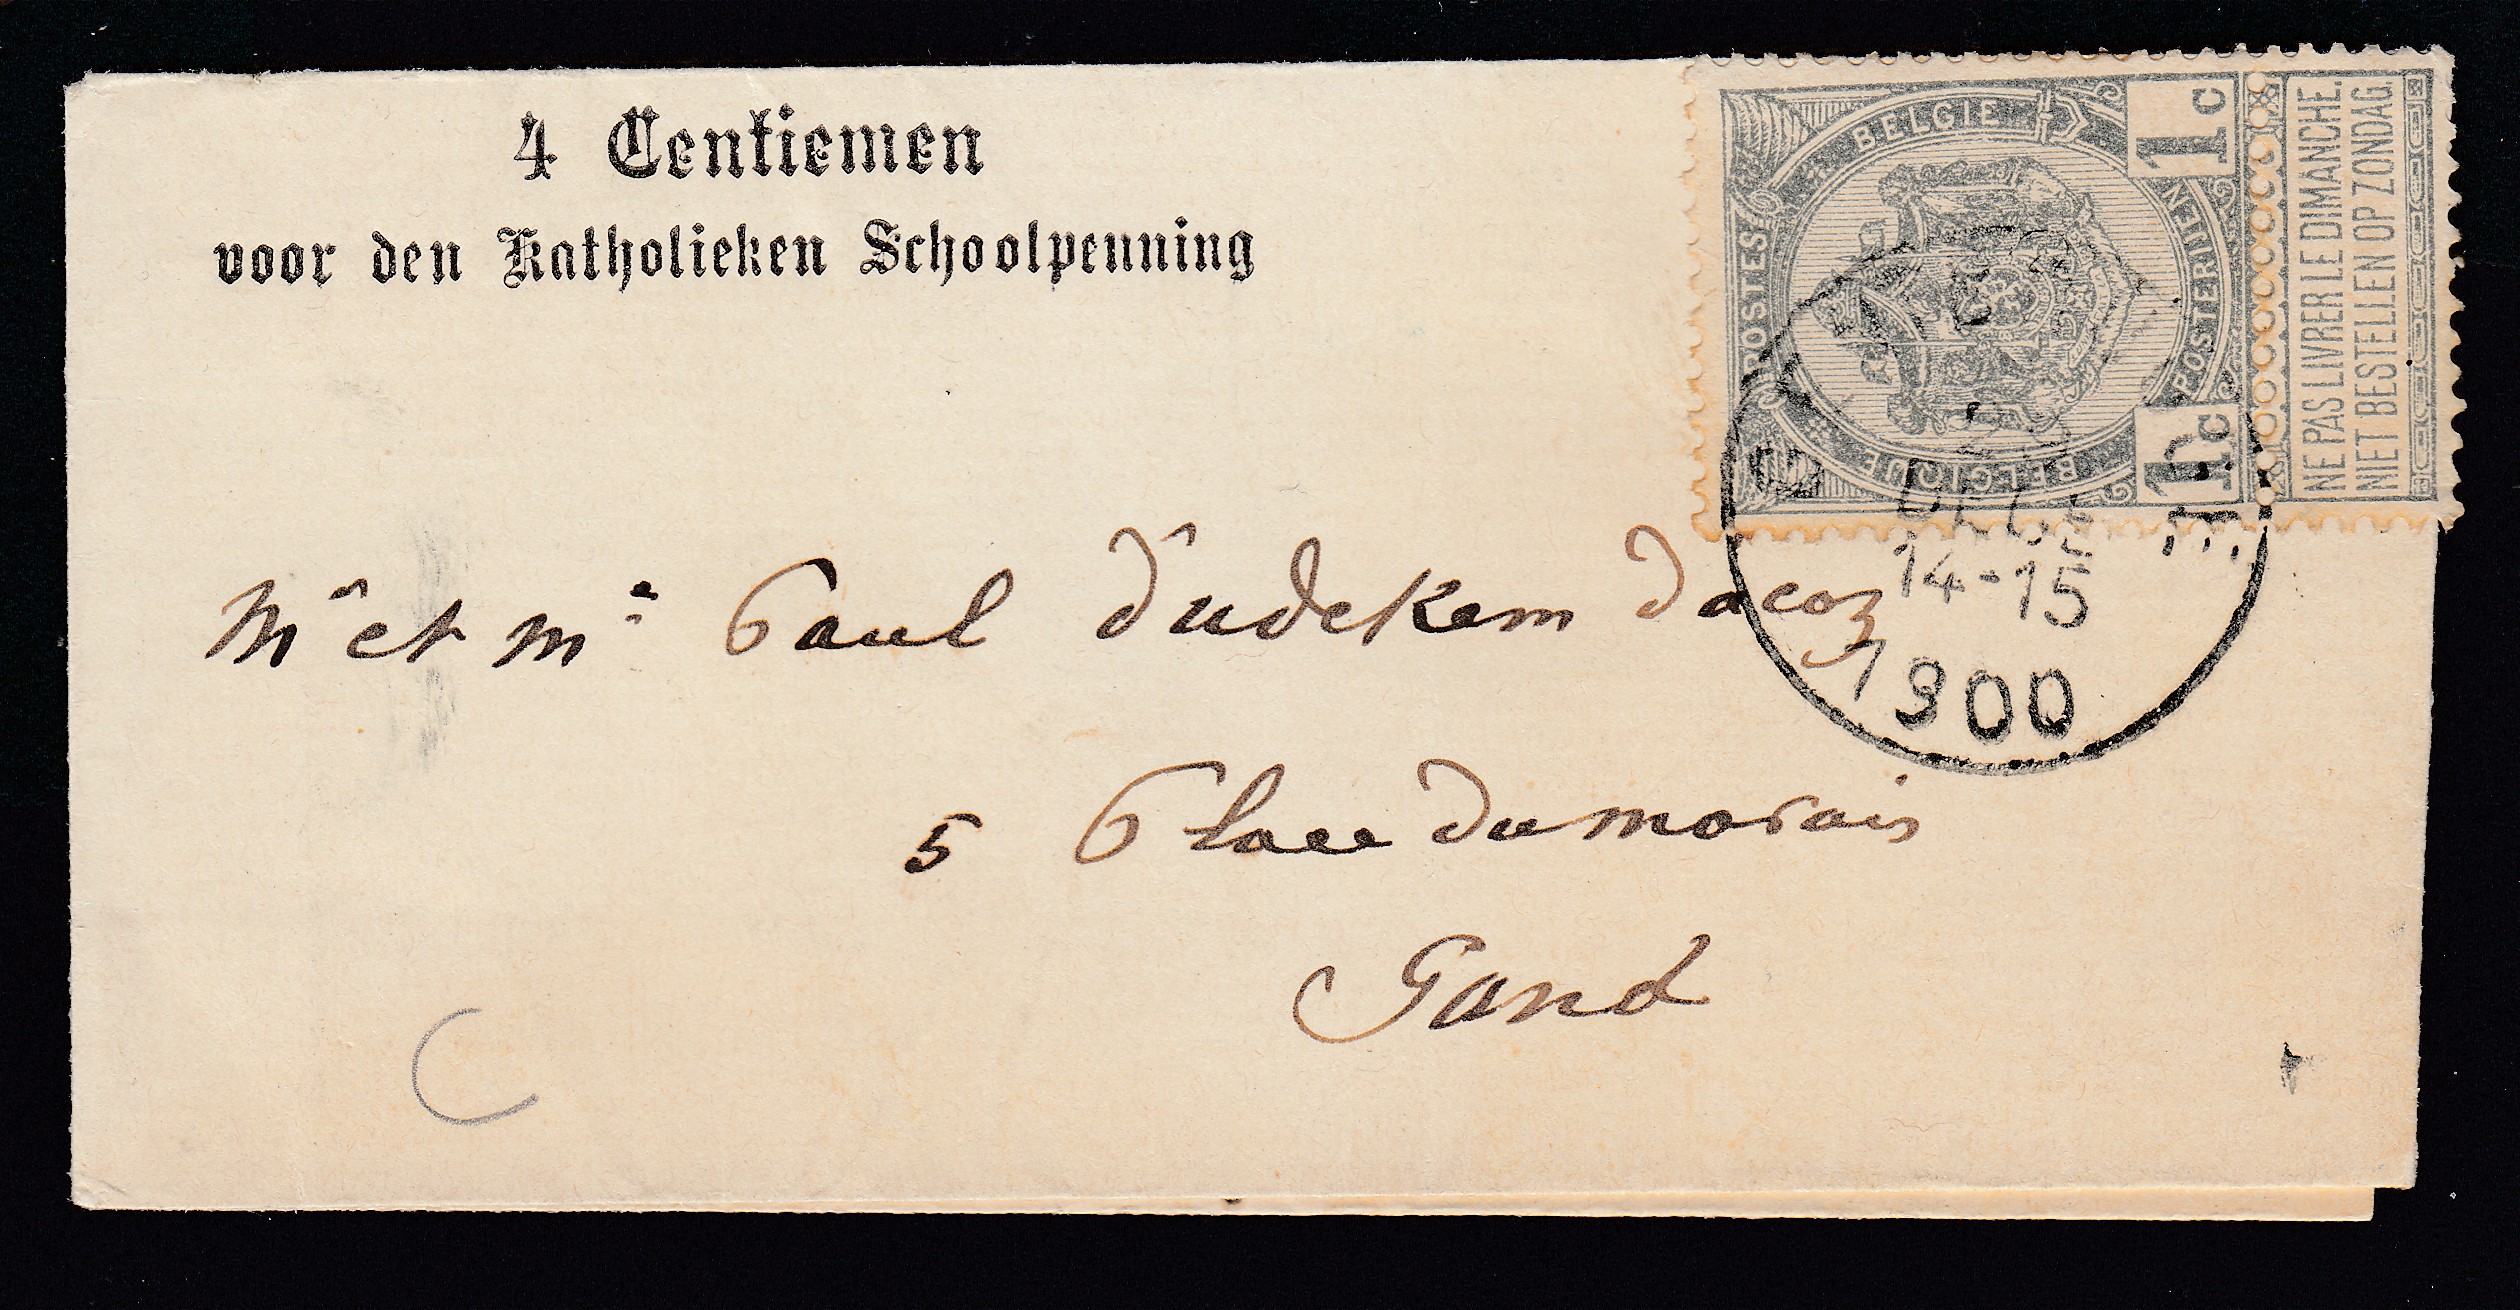 4 Centiemen
voor den Katholieken Schoolpenning
BELGIE
POSTES
POSTERIJEN
BELGIQUE
1c
1c
NE PAS LIVRER LE DIMANCHE.
NIET BESTELLEN OP ZONDAG.
14-15
1900
Mr et Me Paul d'udekem dacoz
5 Place du marais
Gand